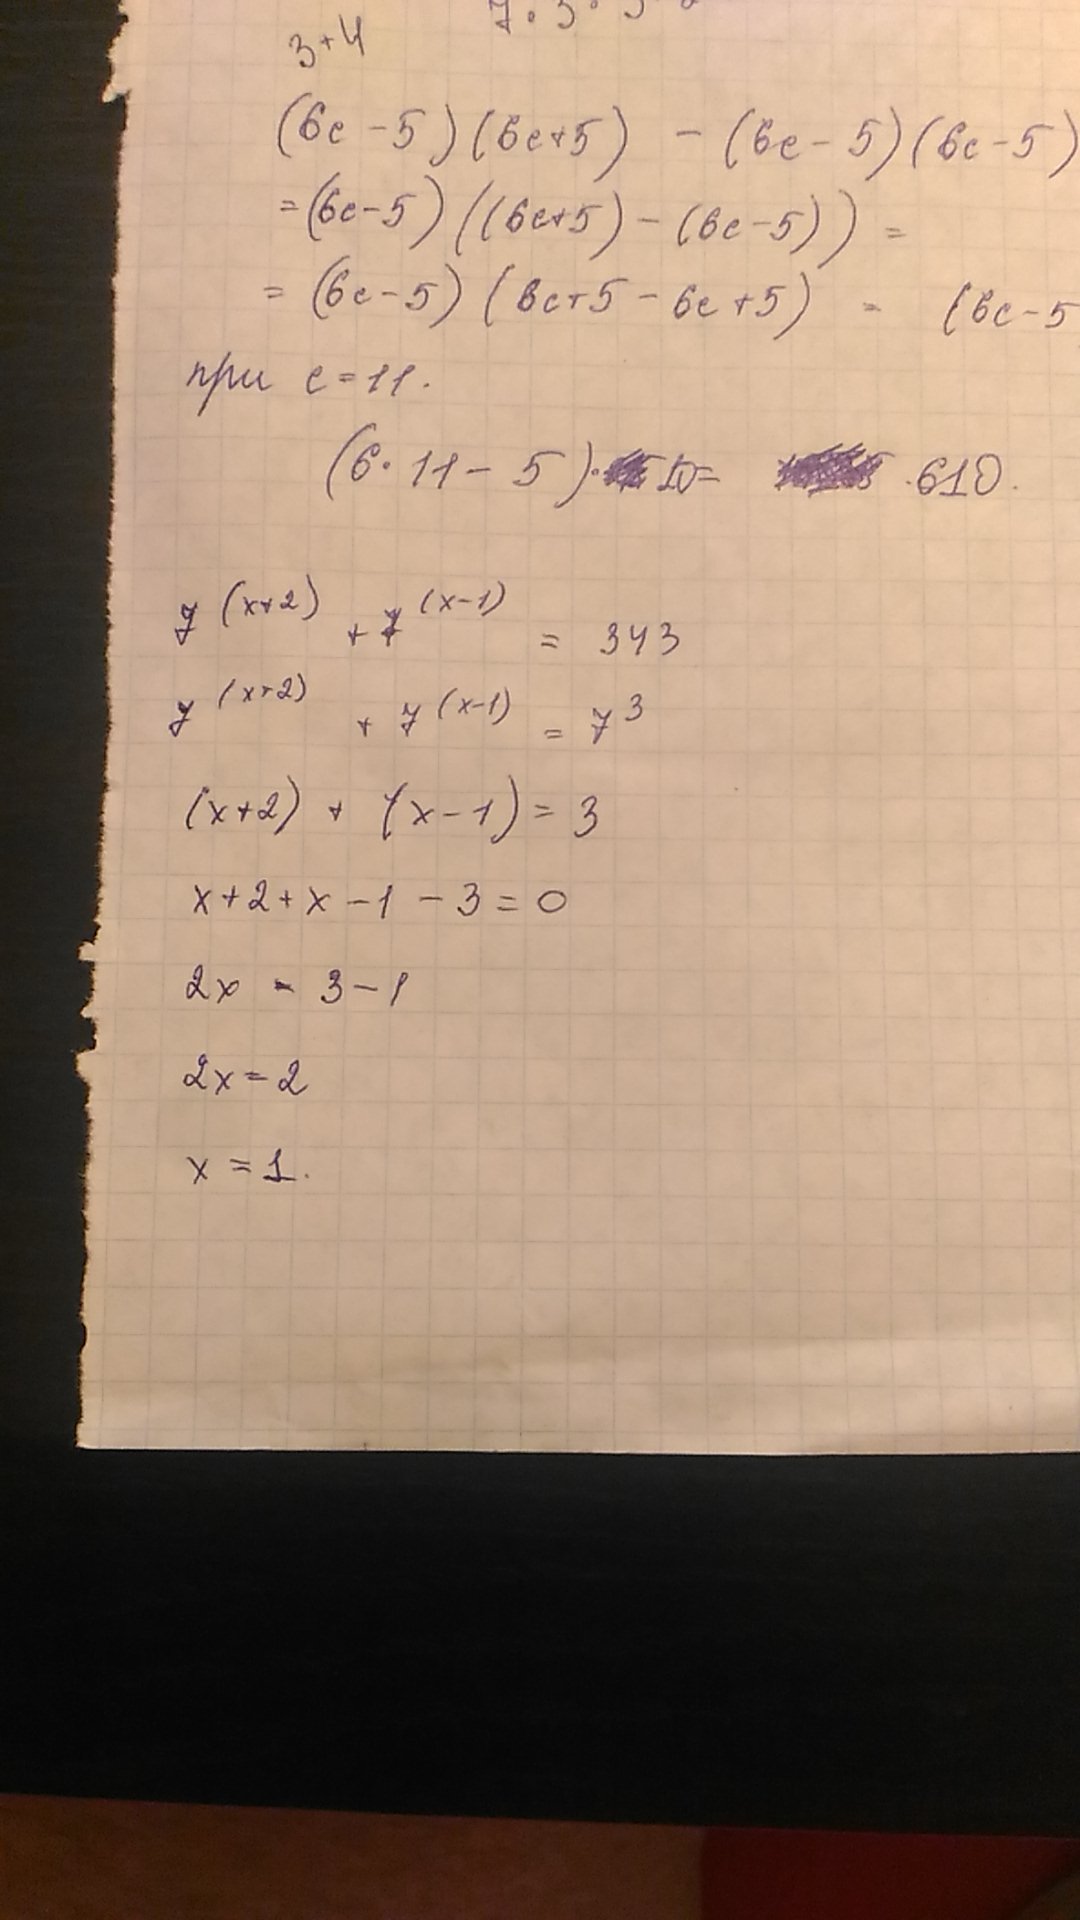 3+4
(6c - 5)(6c+5) - (6c - 5)(6c - 5)
=(6c-5)((6c+5)-(6c-5))=
= (6c-5)(6c+5-6c+5) = (6c-5
при c=11.
(6·11-5)·10= 610.
7^(x+2) + 7^(x-1) = 343
7^(x+2) + 7^(x-1) = 7^3
(x+2) + (x-1) = 3
x+2+x-1-3=0
2x = 3-1
2x=2
x=1.